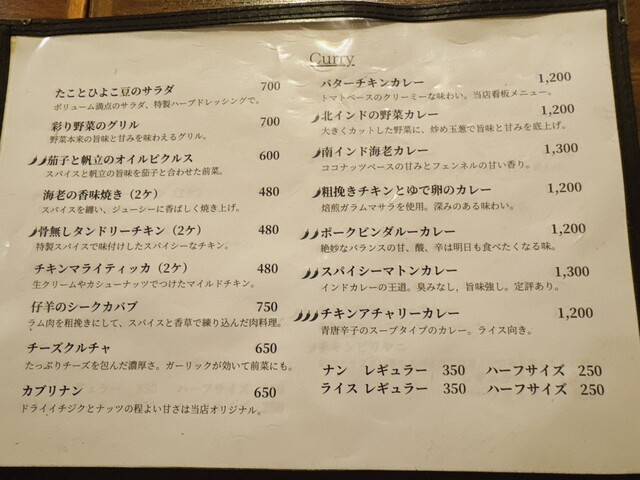 Curry
たことひよこ豆のサラダ 700
ボリューム満点のサラダ、特製ハーブドレッシングで。
彩り野菜のグリル 700
野菜本来の旨味と甘みを味わえるグリル。
茄子と帆立のオイルピクルス 600
スパイスと帆立の旨味を茄子と合わせた前菜。
海老の香味焼き（2ケ） 480
スパイスを纏い、ジューシーに香ばしく焼き上げ。
骨無しタンドリーチキン（2ケ） 480
特製スパイスで味付けしたスパイシーなチキン。
チキンマライティッカ（2ケ） 480
生クリームやカシューナッツでつけたマイルドチキン。
仔羊のシークカバブ 750
ラム肉を粗挽きにして、スパイスと香草で練り込んだ肉料理。
チーズクルチャ 650
たっぷりチーズを包んだ濃厚さ。ガーリックが効いて前菜にも。
カブリナン 650
ドライイチジクとナッツの程よい甘さは当店オリジナル。
バターチキンカレー 1,200
トマトベースのクリーミーな味わい。当店看板メニュー。
北インドの野菜カレー 1,200
大きくカットした野菜に、炒め玉葱で旨味と甘みを底上げ。
南インド海老カレー 1,300
ココナッツベースの甘みとフェンネルの甘い香り。
粗挽きチキンとゆで卵のカレー 1,200
焙煎ガラムマサラを使用。深みのある味わい。
ポークビンダルーカレー 1,200
絶妙なバランスの甘、酸、辛は明日も食べたくなる味。
スパイシーマトンカレー 1,300
インドカレーの王道。臭みなし，旨味強し。定評あり。
チキンアチャリーカレー 1,200
青唐辛子のスープタイプのカレー。ライス向き。
ナン レギュラー 350 ハーフサイズ 250
ライス レギュラー 350 ハーフサイズ 250